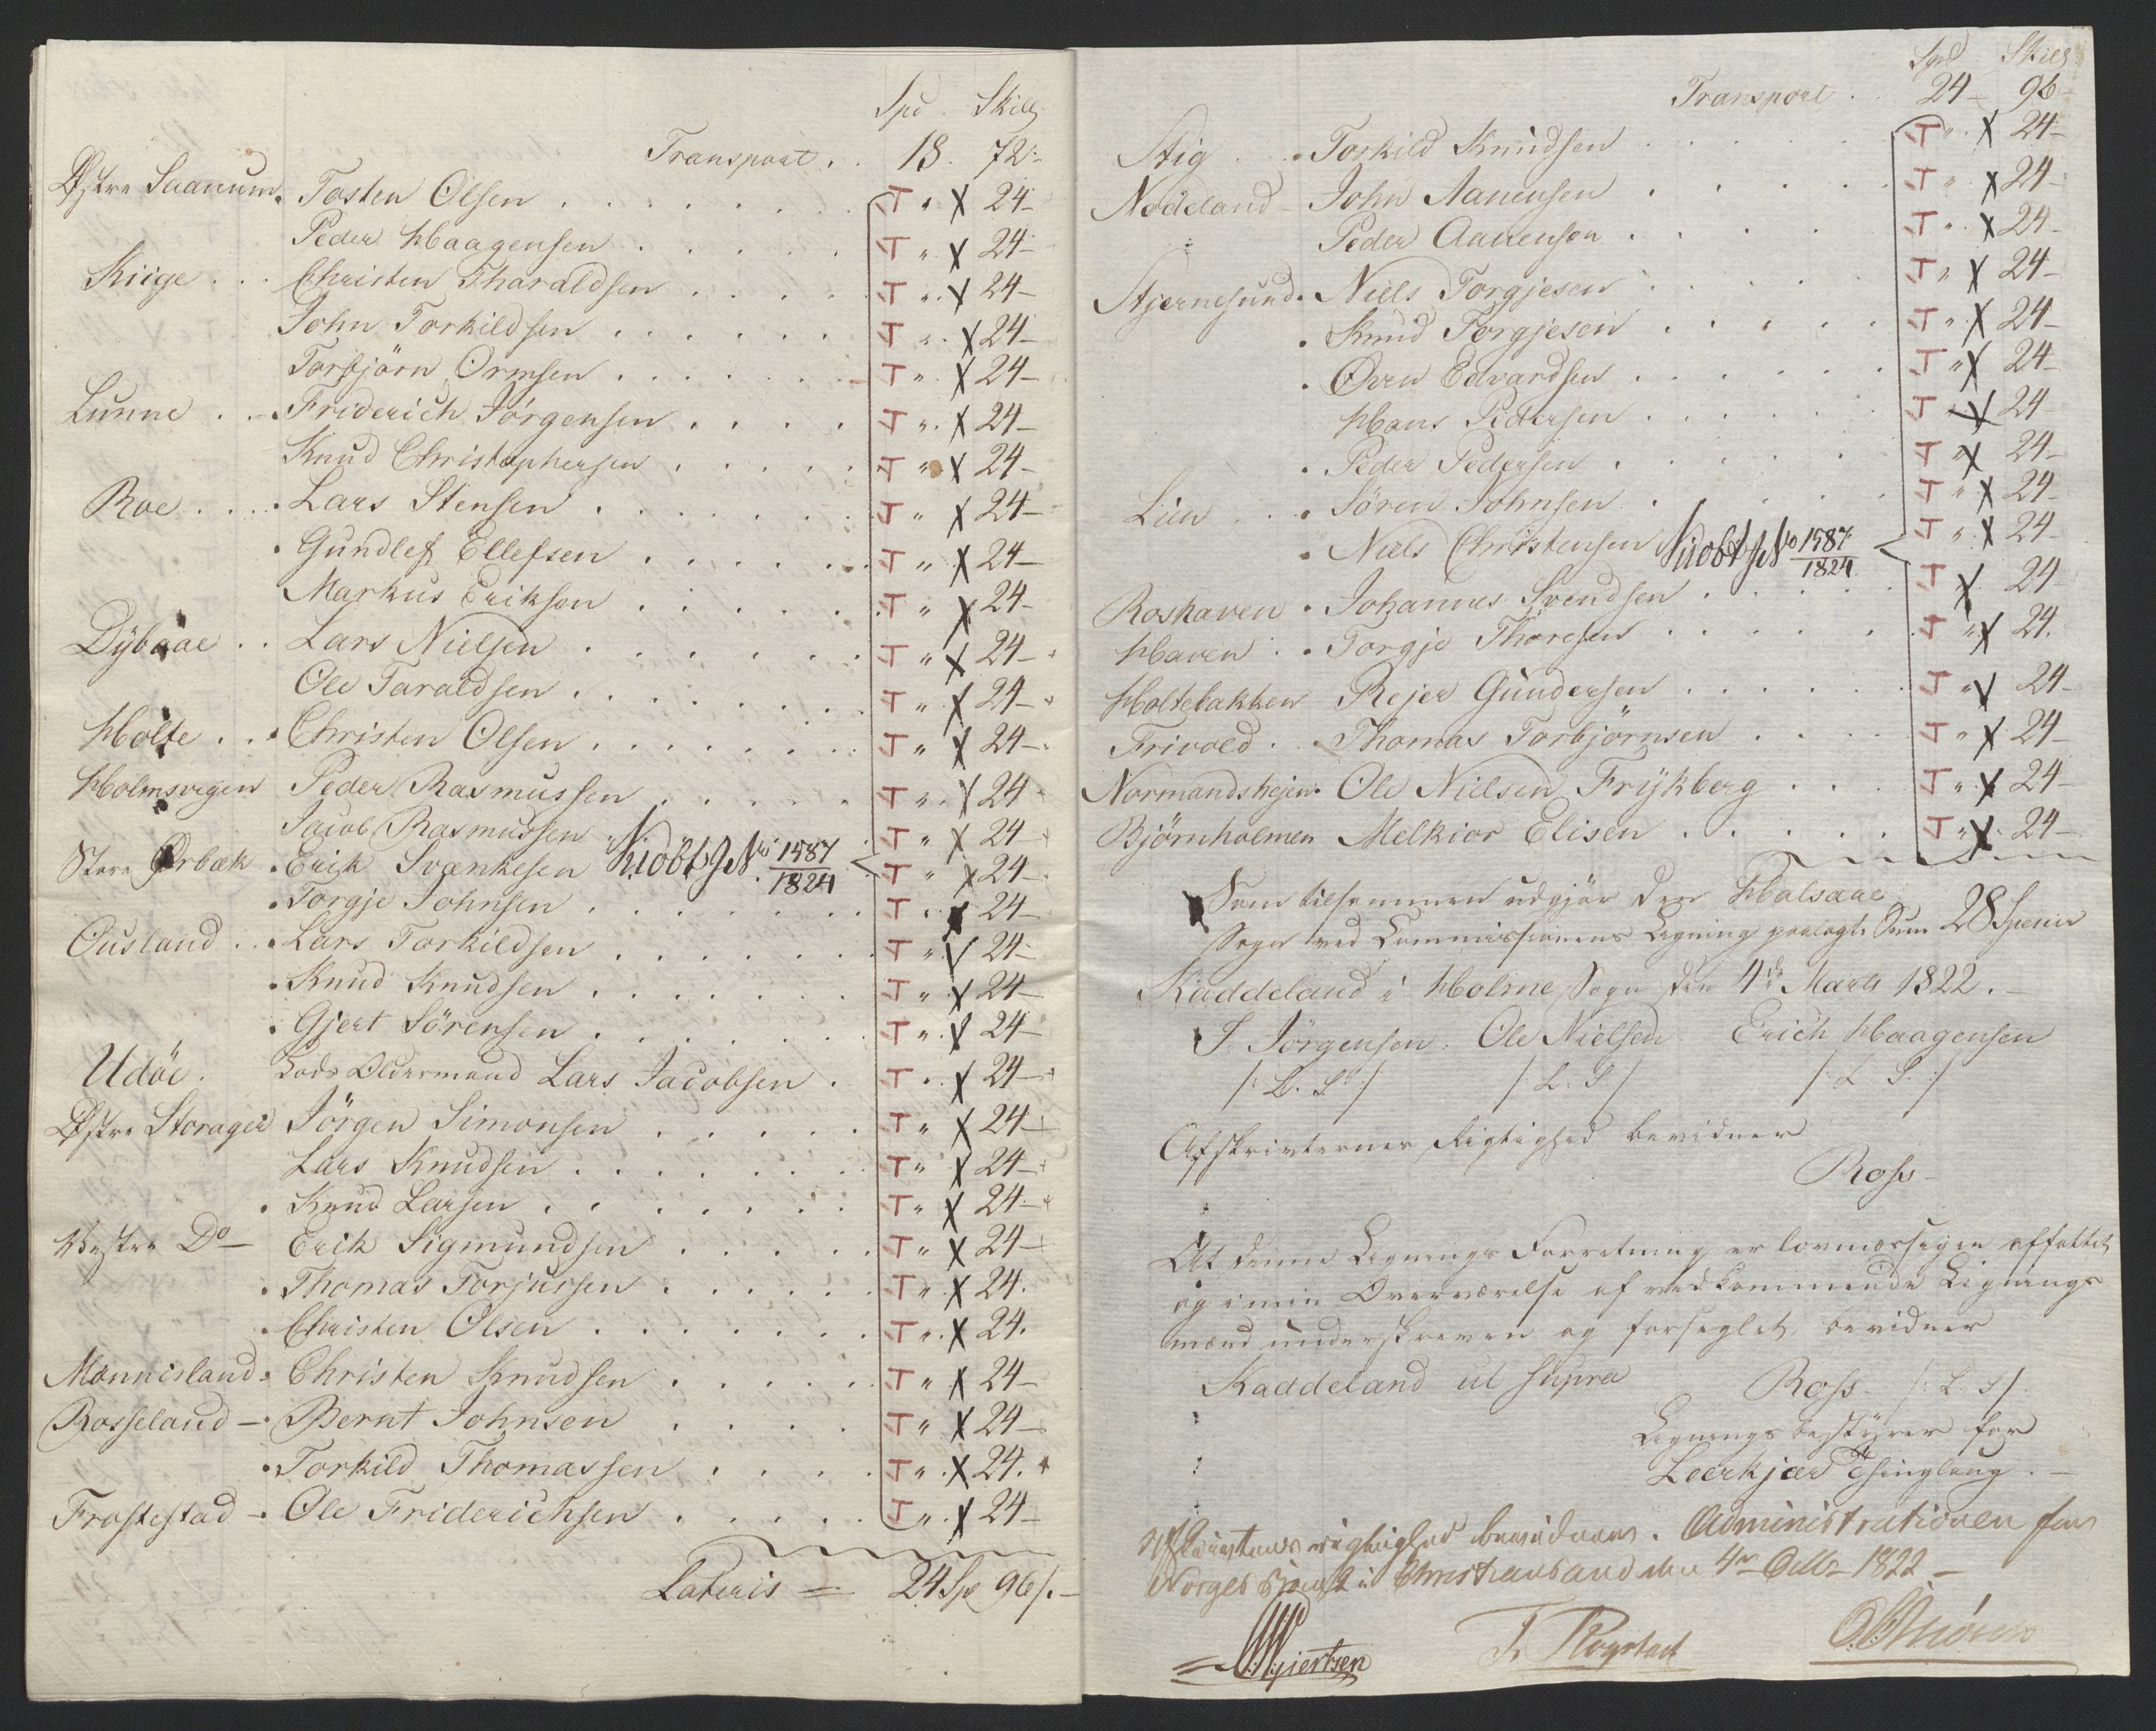 Spd Skill
Transport . . 18. 72.
Østre Saanum. Tosten Olsen . . . T " X 24-
Peder Haagensen . . . T " X 24-
Kiige . . . Christen Tharaldsen . . . T " X 24-
John Torkildsen . . . T " X 24-
Torbjörn Ormsen . . . T " X 24-
Lunne . . . Friderich Jörgensen . . . T " X 24-
Knud Christophersen . . . T " X 24-
Roe . . . Lars Stensen . . . T " X 24-
Gundlef Ellefsen . . . T " X 24-
Markus Eriksen . . . T " X 24-
Dybaae . . Lars Nielsen . . . T " X 24-
Ole Taraldsen . . . T " X 24-
Holte . . . Christen Olsen . . . T " X 24-
Holmsvigen Peder Rasmussen . . . T " X 24-
Jacob Rasmussen T " X 24-
Store Ørbæk . Erik Svenkesen No 1587/1824 T " X 24-
Torgje Johnsen . . . T " X 24-
Ousland . . . Lars Torkildsen . . . T " X 24-
Knud Knudsen . . . T " X 24-
Gjert Sörensen . . . T " X 24-
Udöe . Lods Oldermand Lars Jacobsen . T " X 24-
Østre Storagei Jörgen Simonsen . . . T " X 24-
Lars Knudsen . . . T " X 24-
Knud Larsen . . . T " X 24-
Westre Do — Erik Sigmundsen . . . T " X 24-
Thomas Torjussen . . . T " X 24.
Christen Olsen . . . T " X 24.
Mannisland . Christen Knudsen . . . T " X 24-
Rosseland — Bernt Johnsen . . . T " X 24-
Torkild Thomassen . . . T " X 24.
Frostestad — Ole Friderichsen . . . T " X 24-
Lateris = 24 Sp 96 s. -
Spd Skill
Transport . 24 - 96
Stig . . Torkild Knudsen . . . T " X 24-
Nödeland - John Aanensen . . . T " X 24-
Peder Aanensen . . . T " X 24-
Stjernesund . Niels Torgjesen . . . T " X 24-
Knud Torgjesen . . . T " X 24-
Oven Edvardsen . . . T " X 24-
Hans Pedersen . . . T " X 24
Peder Pedersen . . . T " X 24-
Lien . . . Sören Johnsen . . . T " X 24-
Niels Christensen No 1587/1824 T " X 24-
Roshaven . Johannes Svendsen . . . T X 24
Haven . . Torgje Thoresen . . . T " X 24.
Holtebakken Rejer Gundersen . . . T " X 24-
Frivold . . Thomas Torbjörnsen . . . T " X 24-
Normandshejen . Ole Nielsen Frykberg . . . T " X 24-
Björnholmen Melkior Elisen . . . T " X 24-
Som tilsammen udgjör den Halsaae
Sogn ved Commissionens Ligning paalagte Sum 28 Specier
Kaddeland i Holme Sogn den 4de Marts 1822. -
S. Jörgensen. Ole Nielsen Erich Haagensen
/: L. S. :/ /: L. S :/ /: L. S. :/
Afskrivternes Rigtighed bevidner
Ross -
At denne Lignings Forretning er lovmæssigen affattet
og i min Overværelse af vedkommende Lignings
mænd underskreven og forseglet, bevidner
Kaddeland ut supra Ross. /: L. S :/
Lignings bestyrer for
Leerkjær Thinglaug . -
Afskrivtens rigtighed bevidnes. Administrationen for
Norges Bank i Christiansand den 4de Octbr 1822 -
Gjertsen F. Rogstad